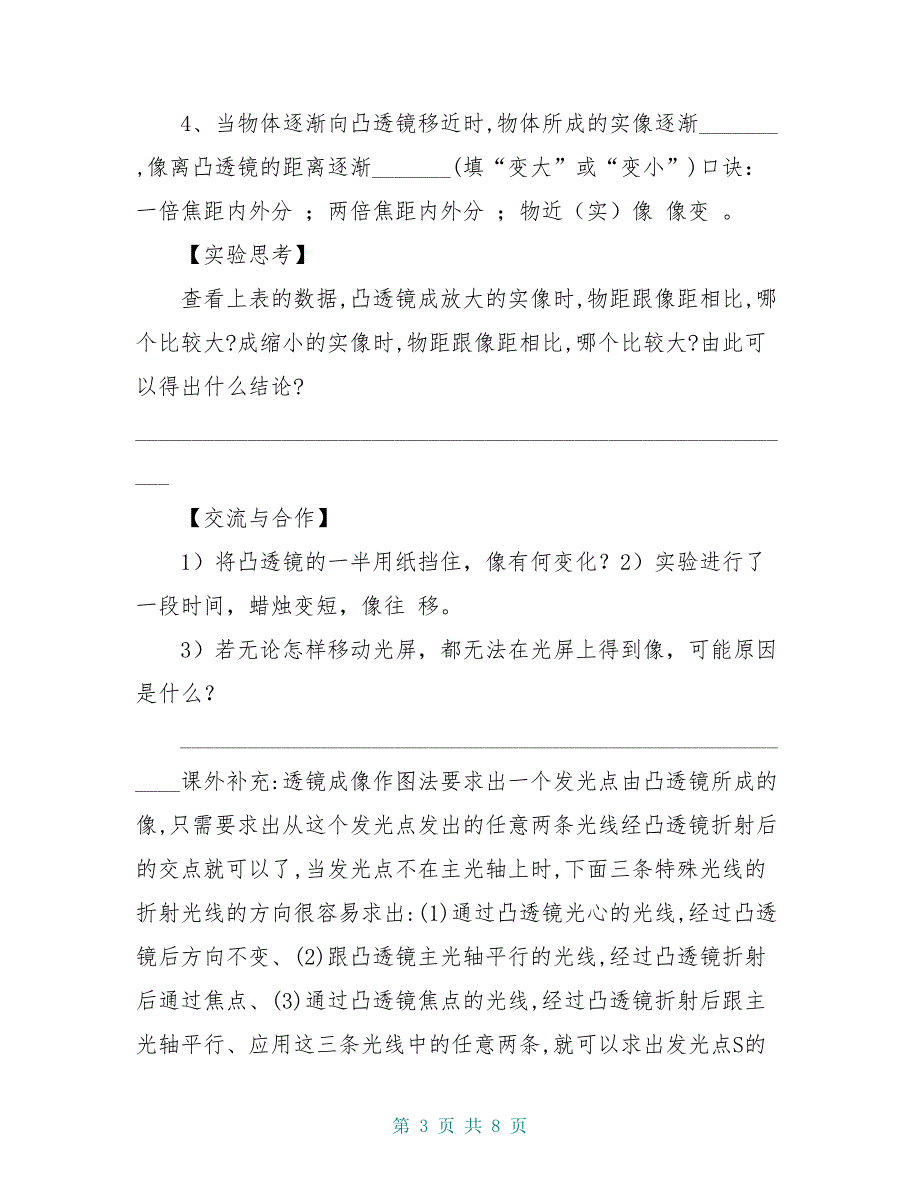 4、当物体逐渐向凸透镜移近时,物体所成的实像逐渐_______
,像离凸透镜的距离逐渐_______(填“变大”或“变小”)口诀：
一倍焦距内外分 ；两倍焦距内外分 ；物近（实）像 像变 。
【实验思考】
查看上表的数据,凸透镜成放大的实像时,物距跟像距相比,哪
个比较大?成缩小的实像时,物距跟像距相比,哪个比较大?由此可
以得出什么结论?
_________________________________________________________
___
【交流与合作】
1）将凸透镜的一半用纸挡住，像有何变化？2）实验进行了
一段时间，蜡烛变短，像往 移。
3）若无论怎样移动光屏，都无法在光屏上得到像，可能原因
是什么？
_____________________________________________________
____课外补充:透镜成像作图法要求出一个发光点由凸透镜所成的
像,只需要求出从这个发光点发出的任意两条光线经凸透镜折射后
的交点就可以了,当发光点不在主光轴上时,下面三条特殊光线的
折射光线的方向很容易求出:(1)通过凸透镜光心的光线,经过凸透
镜后方向不变、(2)跟凸透镜主光轴平行的光线,经过凸透镜折射
后通过焦点、(3)通过凸透镜焦点的光线,经过凸透镜折射后跟主
光轴平行、应用这三条光线中的任意两条,就可以求出发光点S的
第 3 页 共 8 页